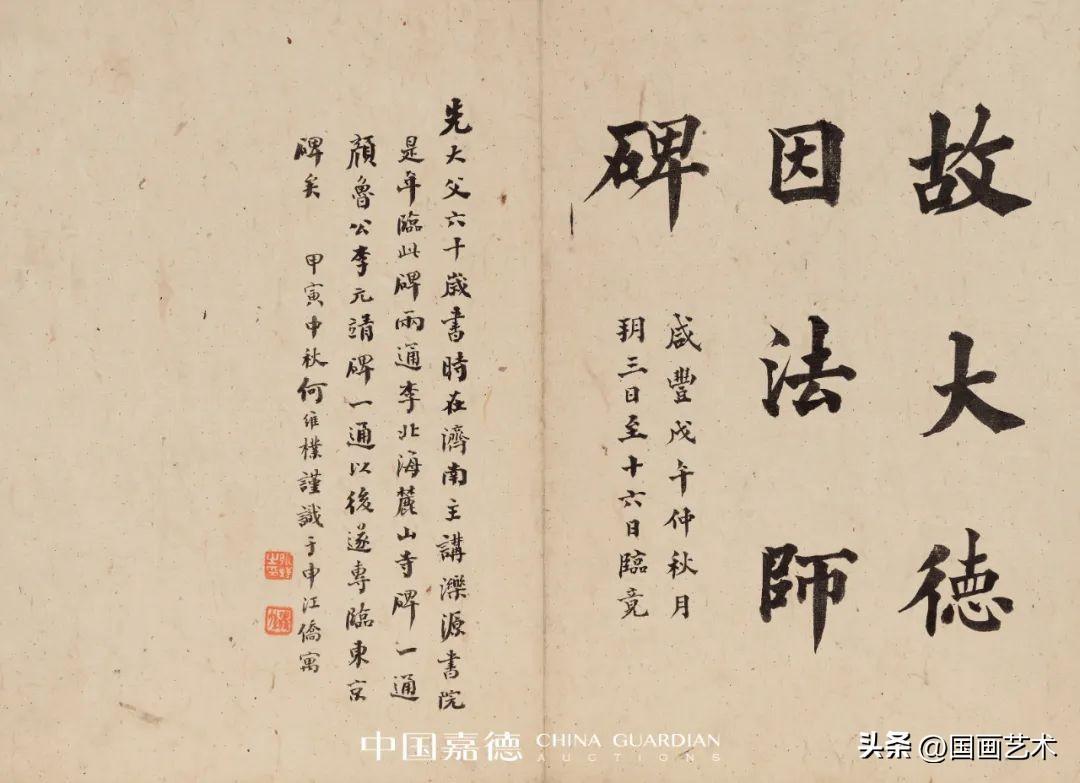 故大德
因法師
碑
咸豐戊午仲秋月
玥三日至十六日臨竟
先大父六十歲書時在濟南主講濼源書院
是年臨此碑兩通李北海麓山寺碑一通
顏魯公李元靖碑一通以後遂專臨東京
碑矣 甲寅中秋何維樸謹識于申江僑寓
中国嘉德 CHINA GUARDIAN
AUCTIONS
头条 @国画艺术